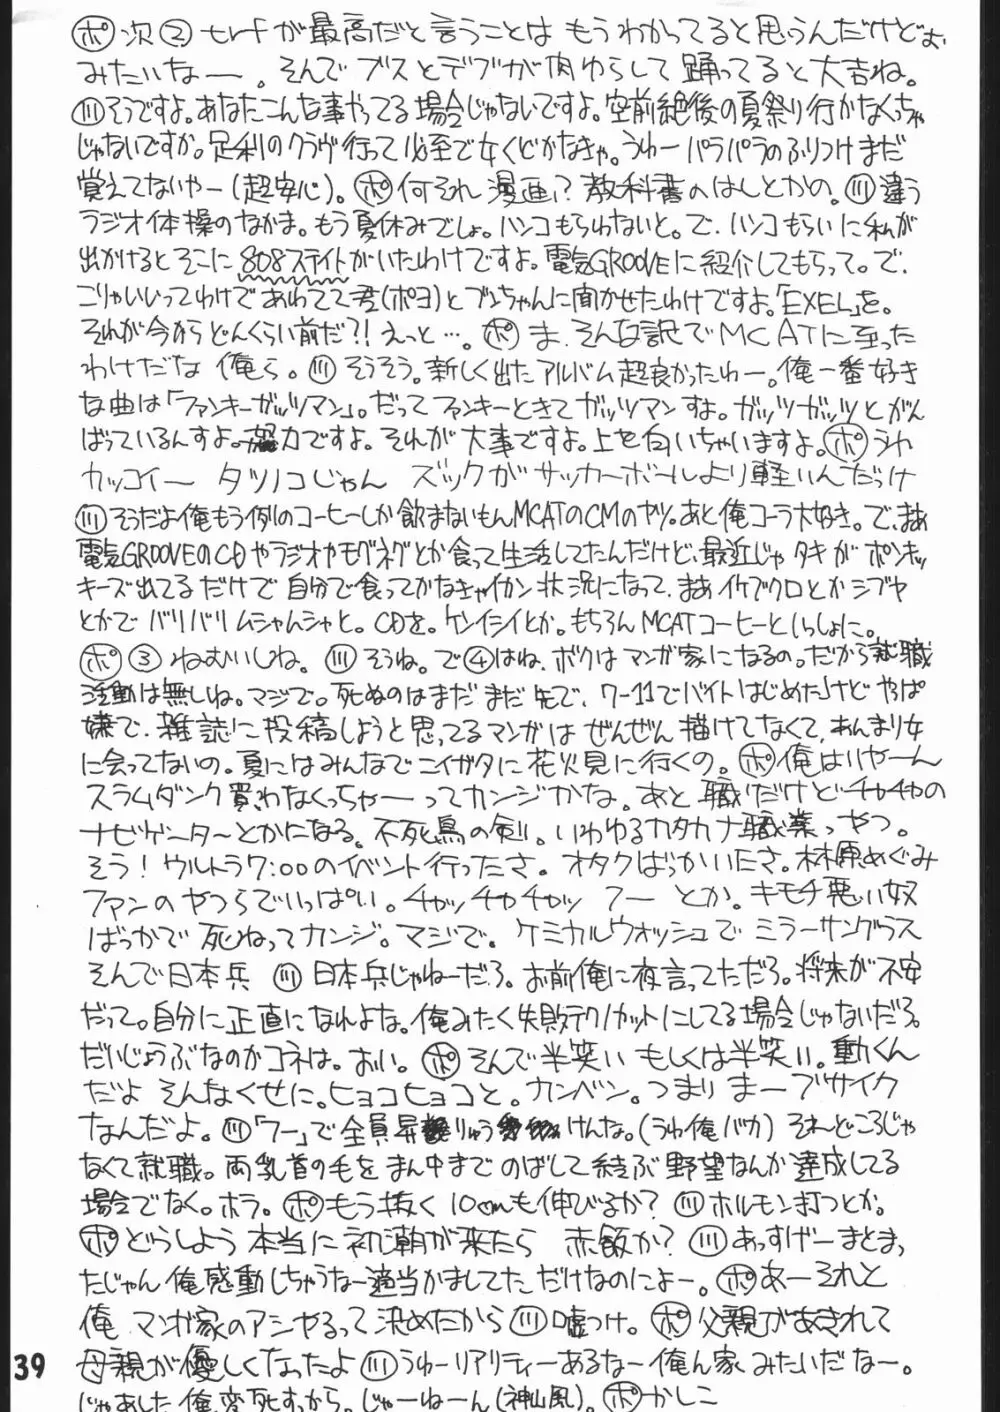 ㋭次② trfが最高だと言うことは もうわかってると思うんだけどぉ、
みたいなー。そんで ブスとデブが肉ゆらして踊ってると大吉ね。
㋛そうですよ。あなたこんな事やってる場合じゃないですよ。空前絶後の夏祭り行かなくちゃ
じゃないですか。足利のクラヴ行って必至で女くどかなきゃ。うゅー パラパラのふりつけまだ
覚えてないやー(超安心)。 ㋭何それ 漫画!? 教科書のはしとかの。 ㋛違う
ラジオ体操のなかま。もう夏休みでしょ。ハンコもらわないと。で、ハンコもらいに私が
出かけるとそこに808ステイトがいたわけですよ。電気GROOVEに紹介してもらって。で、
こりゃいいってわけであわてて君(ポヨ)とブンちゃんに聞かせたわけですよ「EXEL」を。
それが今からどんくらい前だ?! えっと…。 ㋭ま、そんな訳でMCATに至った
わけだな 俺ら。 ㋛そうそう。新しく出たアルバム超良かったわー。俺一番好き
な曲は「ファンキーガッツマン」。だってファンキーときてガッツマンすよ。ガッツガッツとがん
ばっているんすよ。努力ですよ。それが大事ですよ。上を向いちゃいますよ。㋭うわ
カッコイー タツノコじゃん ズックがサッカーボールより軽いんだっけ
㋛そうだよ俺もう例のコーヒーしか飲まないもんMCATのCMのヤツ。あと俺コーラ大好き。で、まあ
電気GROOVEのCDやラジオやモグネグとか食って生活してたんだけど、最近じゃタキがポンキッ
キーズ出てるだけで自分で食ってかなきゃイカン状況になって、まあイケブクロとかシブヤ
とかでバリバリムシャムシャと。CDを。ケンイシイとか。もちろんMCATコーヒーといっしょに。
㋭③ねむいしね。 ㋛そうね。で④はね、ボクはマンガ家になるの。だから就職
活動は無しね。マジで。死ぬのはまだまだ先で、ワー11でバイトはじめたけどやっぱ
嫌で、雑誌に投稿しようと思ってるマンガはぜんぜん描けてなくて、あんまり女
に会ってないの。夏にはみんなでニイガタに花火見に行くの。㋭俺はいやーん
スラムダンク買わなくっちゃーってカンジかな。あと職だけどーチャチャの
ナビゲーターとかになる。不死鳥の剣。いわゆるカタカナ職業っやつ。
そう!ウルトラ7:00のイベント行ったさ。オタクばっかいたさ。林原めぐみ
ファンのやつらでいっぱい。チャッチャチャッ フー とか。キモチ悪い奴
ばっかで死ねってカンジ。マジで。ケミカルウォッシュでミラーサングラス
そんで日本兵 ㋛日本兵じゃねーだろ。お前俺に夜言ってただろ。将来が不安
だって。自分に正直になれよな。俺みたく失敗テクノカットにしてる場合じゃないだろ。
だいじょうぶなのかコネは。おい。 ㋭そんで半笑い もしくは半笑い。動くん
だよ そんなくせに。ヒョコヒョコと。カンベン。つまり まーブサイク
なんだよ。 ㋛「フー」で全員昇りゅう けんな。(うわ俺バカ) それどころじゃ
なくて就職。両乳首の毛をまん中までのばして結ぶ野望なんか達成してる
場合でなく。ホラ。㋭もう抜く 10cmも伸びるか? ㋛ホルモン打つとか。
㋭どうしよう 本当に初潮が来たら 赤飯か? ㋛あっすげーまとまっ
たじゃん俺感動しちゃうなー適当かましてただけなのによー。㋭あーそれと
俺 マンガ家のアシやるって決めたから ㋛嘘つけ。 ㋭父親があきれて
39 母親が優しくなったよ ㋛うゅーリアリティーあるなー俺ん家みたいだなー。
じゃあした俺変死すっから。じゃーねーん(神山風)。㋭かしこ